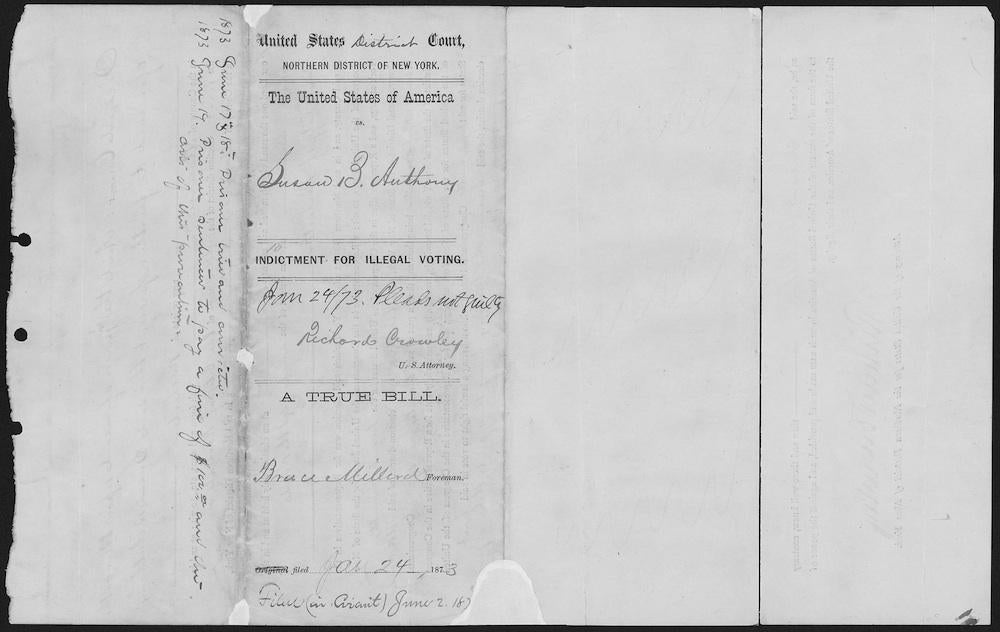 United States District Court,
NORTHERN DISTRICT OF NEW YORK.
The United States of America
vs.
Susan B. Anthony
INDICTMENT FOR ILLEGAL VOTING.
Jan 24/73. Pleads not guilty
Richard Crowley
U. S. Attorney.
A TRUE BILL.
Bruce Millerd Foreman.
Original filed Jan 24, 1873
Filed (in Circuit) June 2. 187
1873 June 17th & 18th Prisoner tried and convicted.
1873 June 19. Prisoner sentenced to pay a fine of $100.00 and the
costs of this prosecution.